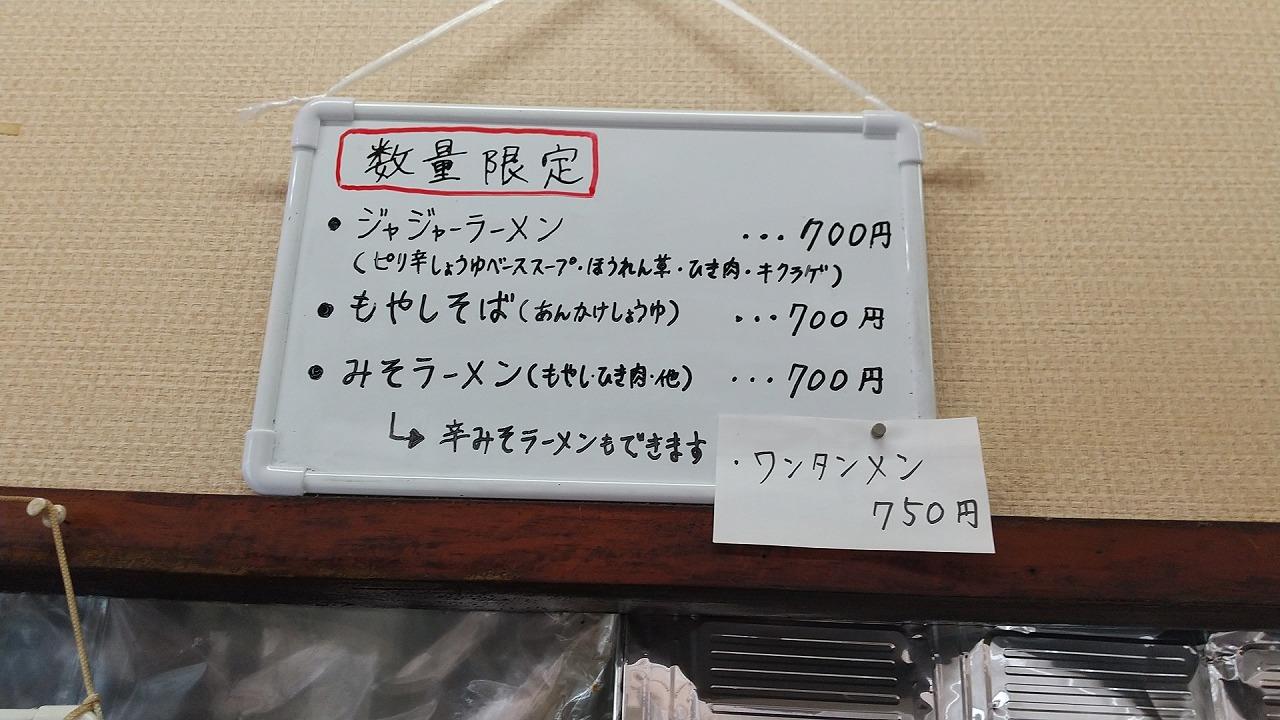 数量限定
● ジャジャーラーメン ...700円
(ピリ辛しょうゆベーススープ・ほうれん草・ひき肉・キクラゲ)
● もやしそば(あんかけしょうゆ) ...700円
● みそラーメン(もやし・ひき肉・他) ...700円
↳ 辛みそラーメンもできます
・ワンタンメン
750円